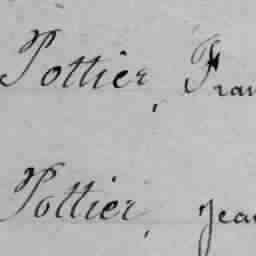 Pottier, Fran
Pottier, Jea